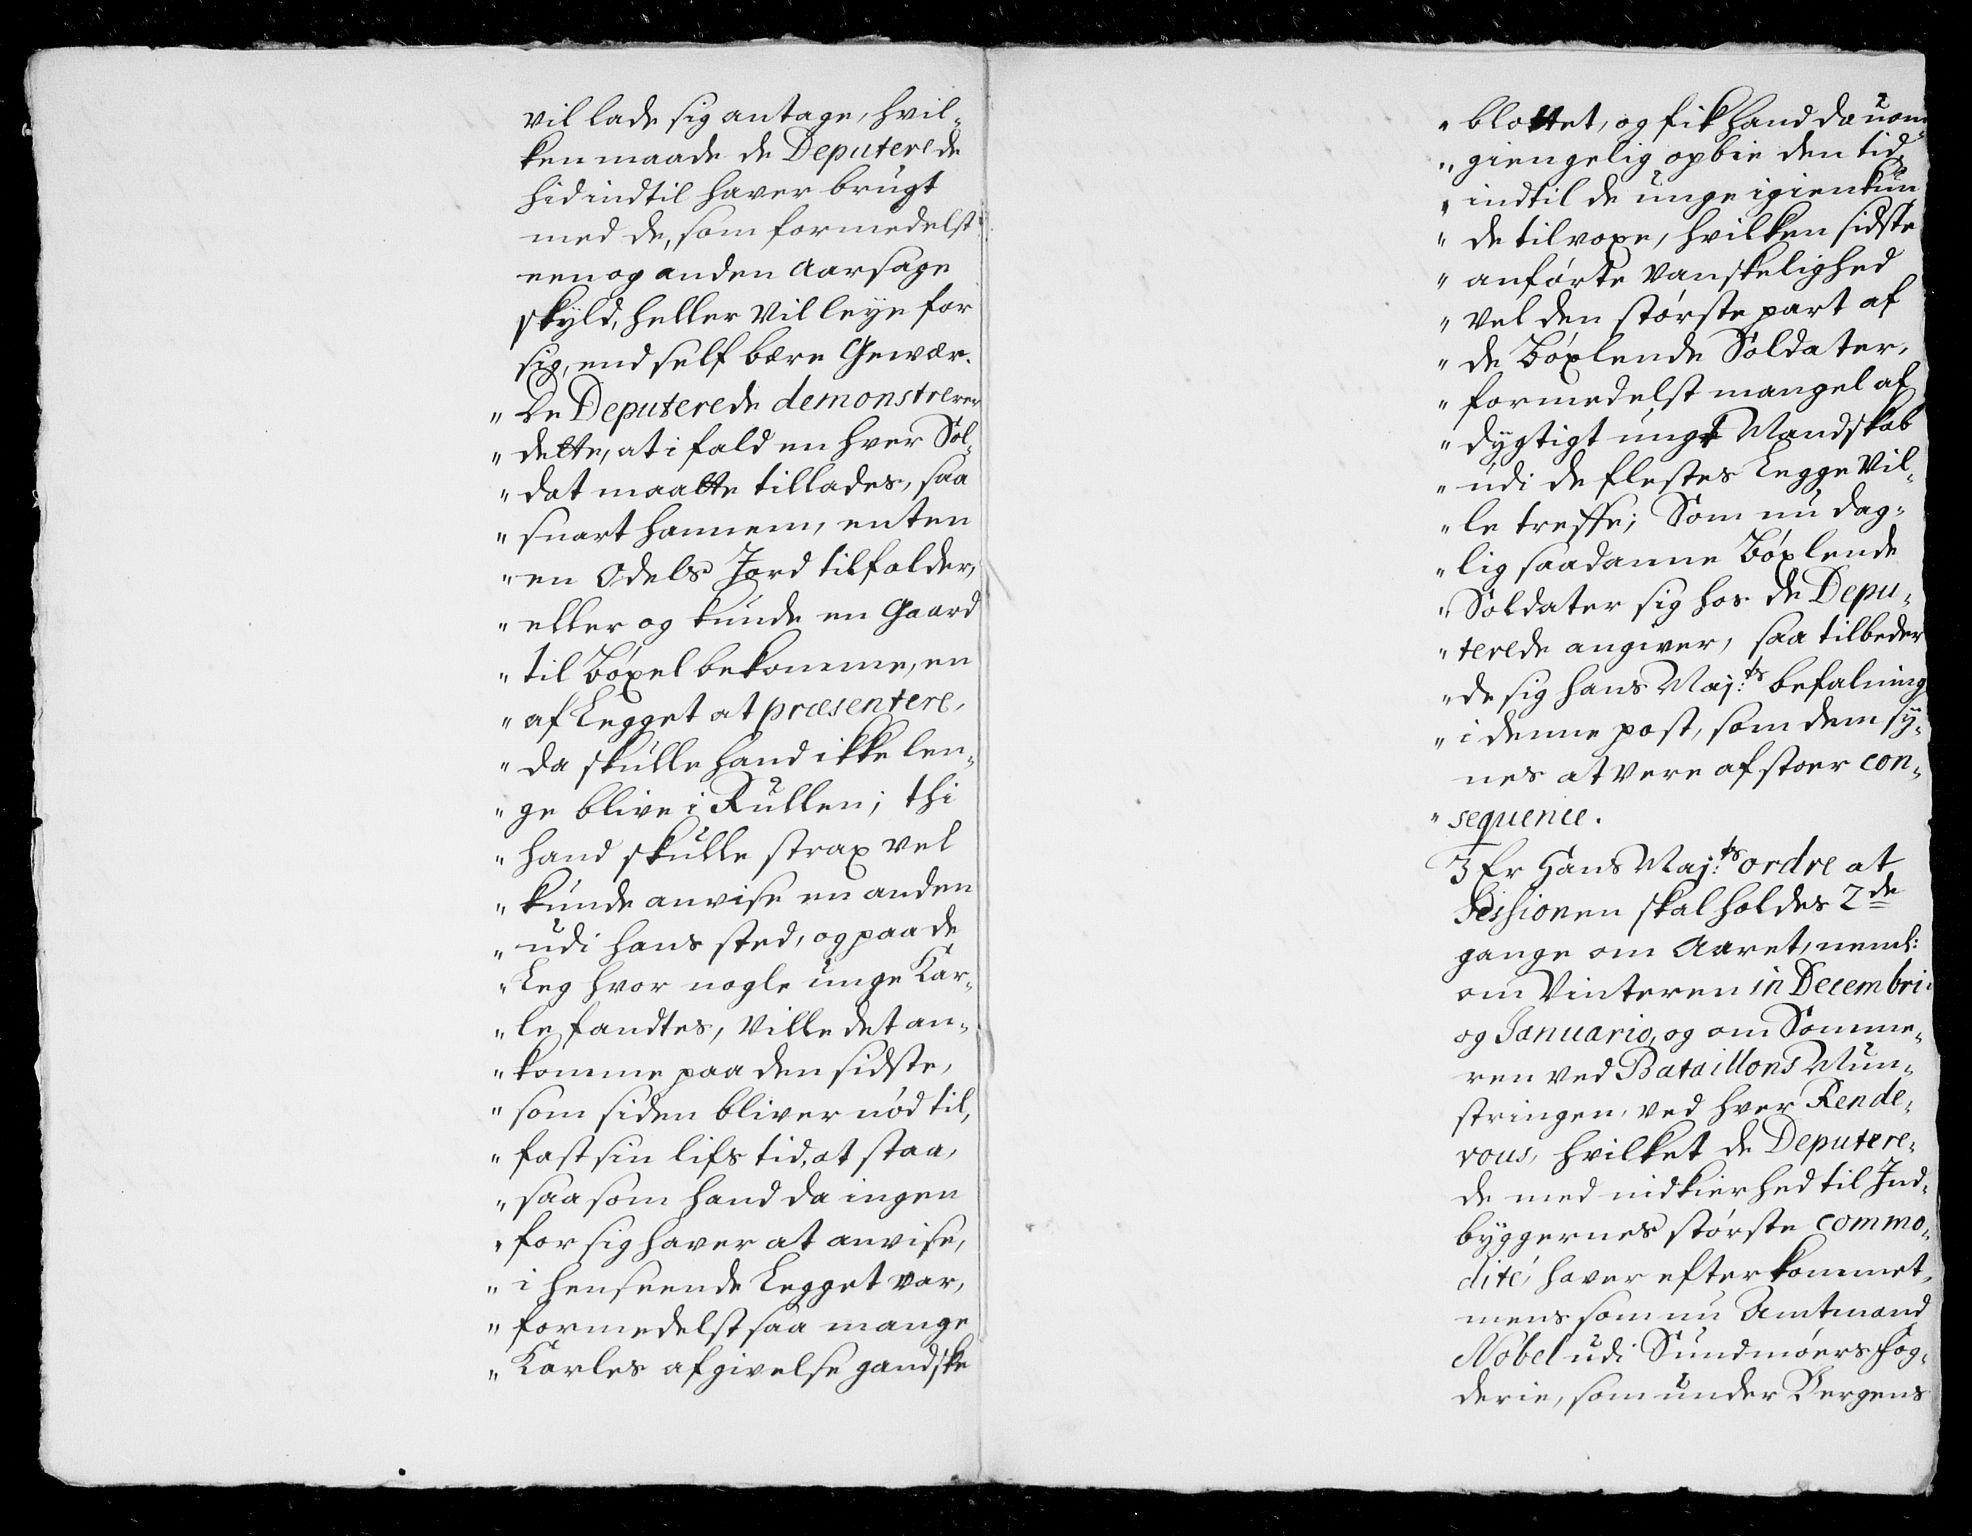 vil lade sig antage, hvil-
ken maade de Deputerede
hid indtil haver brugt
med de, som formedelst
een og anden Aarsage
skyld, heller vil leye for
sig, end self bære Gewær.
" De Deputerede demonstrerer
" dette, at i fald en hver Sol-
" dat maatte tillades, saa
" snart hannem, enten
" en Odels Jord tilfalder,
" eller og kunde en Gaard
" til Bøxel bekomme, en
" af Legget at præsentere,
" da skulle hand ikke len-
" ge blive i Rullen; thi
" hand skulle strax vel
" kunde anvise en anden
" udi hans sted, og paa de
" Leg hvor nogle unge Kar-
" le fandtes, ville det an-
" komme paa den sidste,
" som siden bliver nød til,
" fast sin lifs tid, at staa,
" saa som hand da ingen
" for sig haver at anvise,
" i henseende Legget var,
" formedelst saa mange
" Karles afgivelse gandske
" blottet, og fik hand da uom-
" giengelig opbie den tid,
" indtil de unge igien kun-
" de tilvoxe, hvilken sidste
" anførte vanskelighed
" vel den største part af
" de Bøxlende Soldater,
" formedelst mangel af
" dygtigt ungt Mandskab
" udi de flestes Legge vil-
" le treffe; Som nu dag-
" lig saadanne Bøxlende
" Soldater sig hos de Depu-
" terede angiver, saa tilbeder
" de sig hans Maj:ts befalning
" i denne post, som dem sy-
nes at vere af stoer con-
" sequence.
3 Er Hans Maj:ts ordre at
Sessionen skal holdes 2de
gange om Aaret, neml:
om Vinteren in Decembri
og Januario, og om Somme-
ren ved Bataillons Mun-
stringen, ved hver Rende-
vous, hvilket de Deputere-
de med nidkierhed til Ind-
byggernes største commo-
dité, haver efterkommet,
mens som nu Amtmand
Nobel udi Sundmøers Fog-
derie, som under Bergens